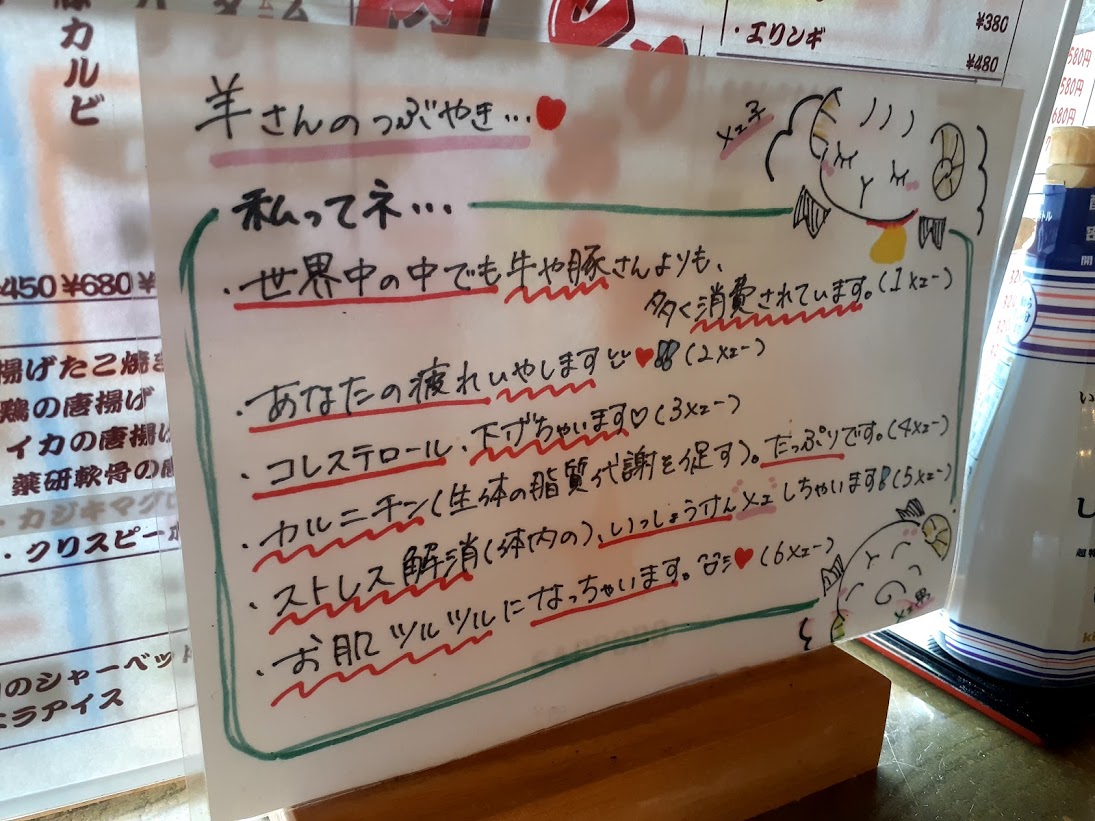 カルビ
・エリンギ
¥380
¥480
羊さんのつぶやき…
メェ子
私ってネ…
・世界中の中でも牛や豚さんよりも、
多く消費されています。(1メェー)
・あなたの疲れいやします (2メェー)
・コレステロール、下げちゃいます♡(3メェー)
・カルニチン(生体の脂質代謝を促す)。たっぷりです。(4メェー)
・ストレス解消(体内の)、いっしょうけんメェしちゃいます!(5メェー)
・お肌ツルツルになっちゃいます。(6メェー)
メェ男
450 ¥680 ¥
揚げたこ焼き
鶏の唐揚げ
イカの唐揚げ
薬研軟骨の
・カジキマグロ
・クリスピー
のシャーベット
ニラアイス
580円
580円
680円